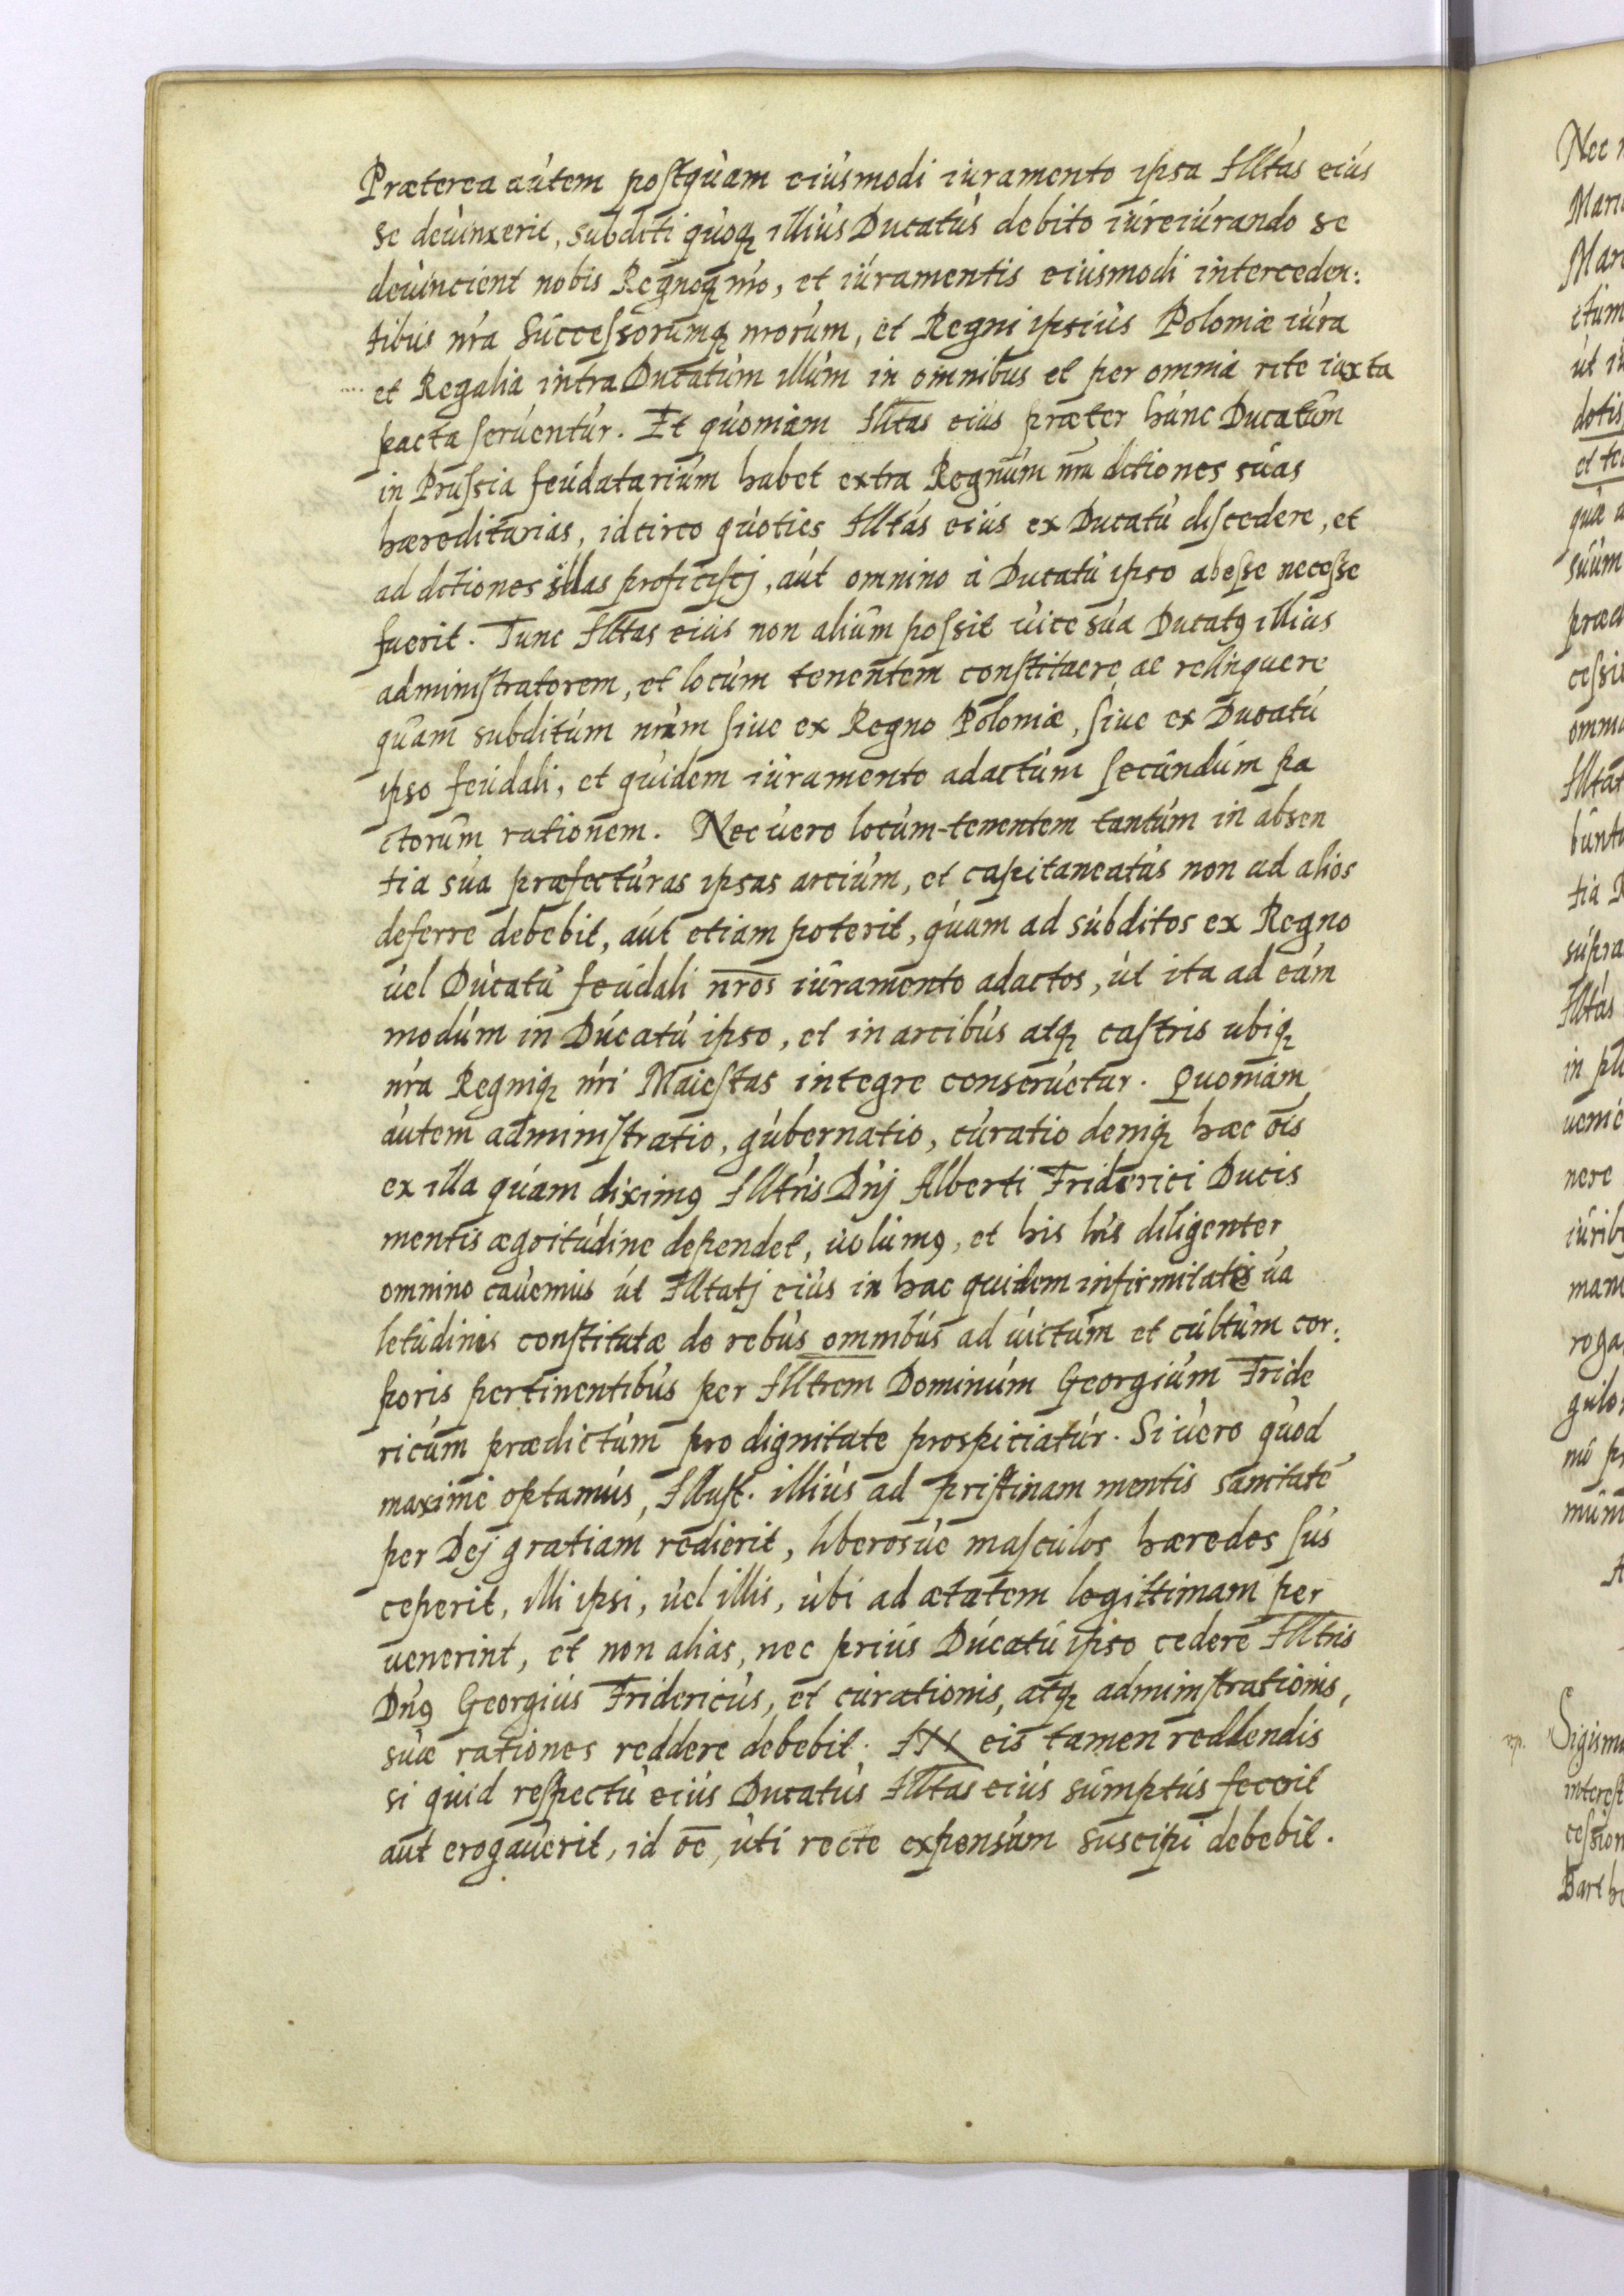 Præterea autem postquam eiusmodi iuramento ipsa Illtas eius
se deuinxerit, subditi quoq illius Ducatus debito iureiurando se
deuincient nobis Regnoq nro, et iuramentis eiusmodi interceden:
tibus nra Successorumq nrorum, et Regni ipsius Poloniæ iura
et Regalia intra Ducatum illum in omnibus et per omnia rite iuxta
pacta seruentur. Et quoniam Illtas eius præter hunc Ducatum
in Prussia feudatarium habet extra Regnum nrm ditiones suas
hæreditarias, idcirco quoties Illtas eius ex Ducatu discedere, et
ad ditiones illas proficiscj, aut omnino à Ducatu ipso abesse necesse
fuerit. Tunc Illtas eius non alium possit uice sua Ducatus illius
administratorem, et locum tenentem constituere ac relinquere
quam subditum nrum siue ex Regno Poloniæ, siue ex Ducatu
ipso feudali, et quidem iuramento adactum secundum pa
ctorum rationem. Nec uero locum-tenentem tantum in absen
tia sua præfecturas ipsas arcium, et capitaneatus non ad alios
deferre debebit, aut etiam poterit, quam ad subditos ex Regno
uel Ducatu feudali nros iuramento adactos, ut ita ad eum
modum in Ducatu ipso, et in arcibus atq castris ubiq
nra Regniq nri Maiestas integre conseruetur. Quoniam
autem administratio, gubernatio, curatio deniq hæc ois
ex illa quam diximus Illtris Dnj Alberti Friderici Ducis
mentis ægritudine dependet, uolumus, et his lris diligenter
omnino cauemus ut Illtatj eius in hac quidem infirmitate ua
letudinis constitutæ de rebus omnibus ad uictum et cultum cor:
poris pertinentibus per Illtrem Dominum Georgium Fride
ricum prædictum pro dignitate prospiciatur. Si uero quod
maxime optamus, Illust. illius ad pristinam mentis sanitatē
per Dej gratiam redierit, liberosue masculos hæredes sus
ceperit, illi ipsi, uel illis, ubi ad ætatem legittimam per
uenerint, et non alias, nec prius Ducatu ipso cedere Illtris
Dnus Georgius Fridericus, et curationis, atq administrationis,
suæ rationes reddere debebit. eis tamen reddendis
si quid respectu eius Ducatus Illtas eius sumptus fecerit
aut erogauerit, id oē, uti recte expensum suscipi debebit.